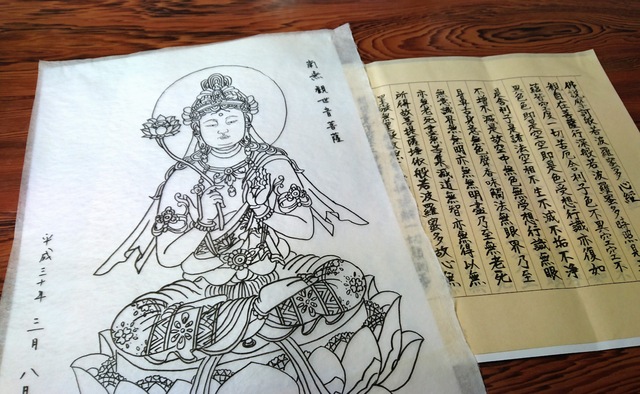 南無観世音菩薩
平成三十年三月八
佛説摩訶般若波羅蜜多心経
観自在菩薩行深般若波羅蜜多時照見五
蘊皆空度一切苦厄舎利子色不異空空不
異色色即是空空即是色受想行識亦復如
是舎利子是諸法空相不生不滅不垢不浄
不増不減是故空中無色無受想行識無眼
耳鼻舌身意無色聲香味觸法無眼界乃至
無意識界無無明亦無無明盡乃至無老死
亦無老死盡無苦集滅道無智亦無得以無
所得故菩提薩埵依般若波羅蜜多故心無